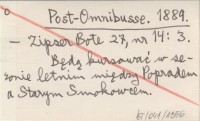 Post-Omnibusse. 1889.
— Zipser Bote 27, nr 14: 3.
Będą kursować w se-
zonie letnim między Popradem
a Starym Smokowcem.